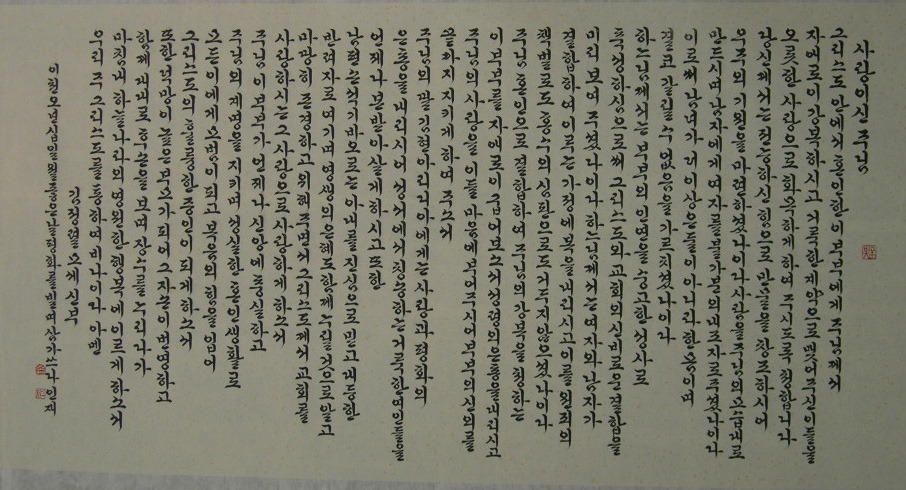 사랑이신 주님
그리스도 안에서 혼인한 이 부부에게 주님께서
자비로이 강복하시고 거룩한 계약으로 맺어주신 이들을
오롯한 사랑으로 화목하게 하여 주시도록 청합니다
하느님께서는 전능하신 힘으로 만물을 창조하시어
우주의 기원을 마련하셨나이다 사람을 주님의 모습대로
만드시며 남자에게 여자를 불가분의 반려자로 주셨나이다
이로써 남녀가 이상 둘이 아니라 한 몸이며
결코 갈릴 수 없음을 가르치셨나이다
하느님께서는 부부의 인연을 숭고한 성사로
축성하심으로써 그리스도와 교회의 신비로운 결합을
미리 보여 주셨나이다 하느님께서는 여자와 남자가
결합하여 이루는 가정에 복을 내리시고 이를 원죄의
책벌로도 홍수의 심판으로도 거두지 않으셨나이다
주님 혼인으로 결합하여 주님의 강복을 청하는
이 부부를 자애로이 굽어보시어 성령의 은총을 내리시고
주님의 사랑을 이들 마음에 부어 주시어 부부의 신의를
끝까지 지키게 하여 주소서
주님의 딸 에게는 사랑과 평화의
은총을 내리시어 성경에서 칭송하는 거룩한 여인들을
언제나 본받아 살게 하시고 또한
남편 아내를 진심으로 믿고 대등한
반려자로 여기며 영생의 은혜도 함께 누릴 것으로 알고
마땅히 존경하고 위해 주며 그리스도께서 교회를
사랑하시는 그 사랑으로 사랑하게 하소서
주님 이 부부가 언제나 신앙에 충실하고
주님의 계명을 지키며 성실한 혼인생활로
모든 이에게 모범이 되고 복음의 힘을 입어
그리스도의 훌륭한 증인이 되게 하소서
또한 부모가 되어 하고
함께 자녀 보며 장수를 누리다가
마침내 하늘나라의 영원한 행복에 이르게 하소서
우리 주 그리스도를 통하여 비나이다 아멘